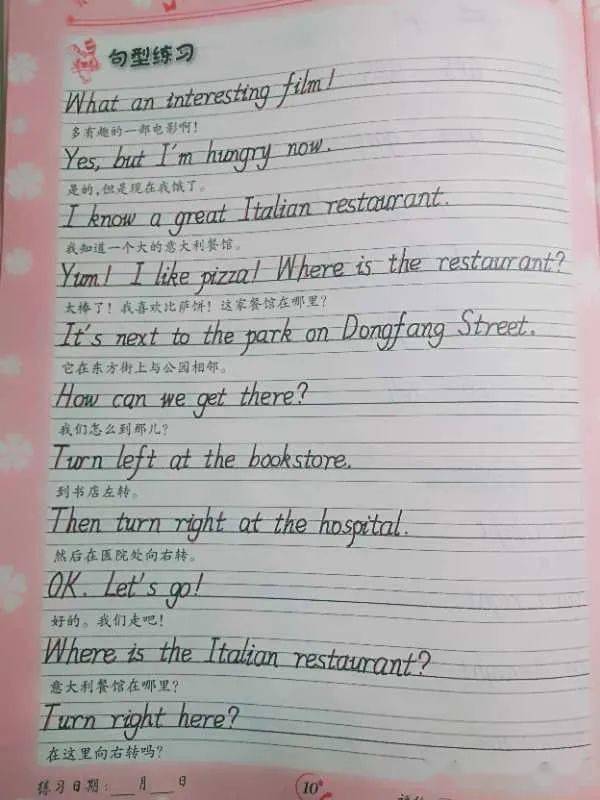 句型练习
What an interesting film!
多有趣的一部电影啊!
Yes, but I'm hungry now.
是的,但是现在我饿了。
I know a great Italian restaurant.
我知道一个大的意大利餐馆。
Yum! I like pizza! Where is the restaurant?
太棒了! 我喜欢比萨饼! 这家餐馆在哪里?
It's next to the park on Dongfang Street.
它在东方街上与公园相邻。
How can we get there?
我们怎么到那儿?
Turn left at the bookstore.
到书店左转。
Then turn right at the hospital.
然后在医院处向右转。
OK. Let's go!
好的。我们走吧!
Where is the Italian restaurant?
意大利餐馆在哪里?
Turn right here?
在这里向右转吗?
练习日期:___月___日
10